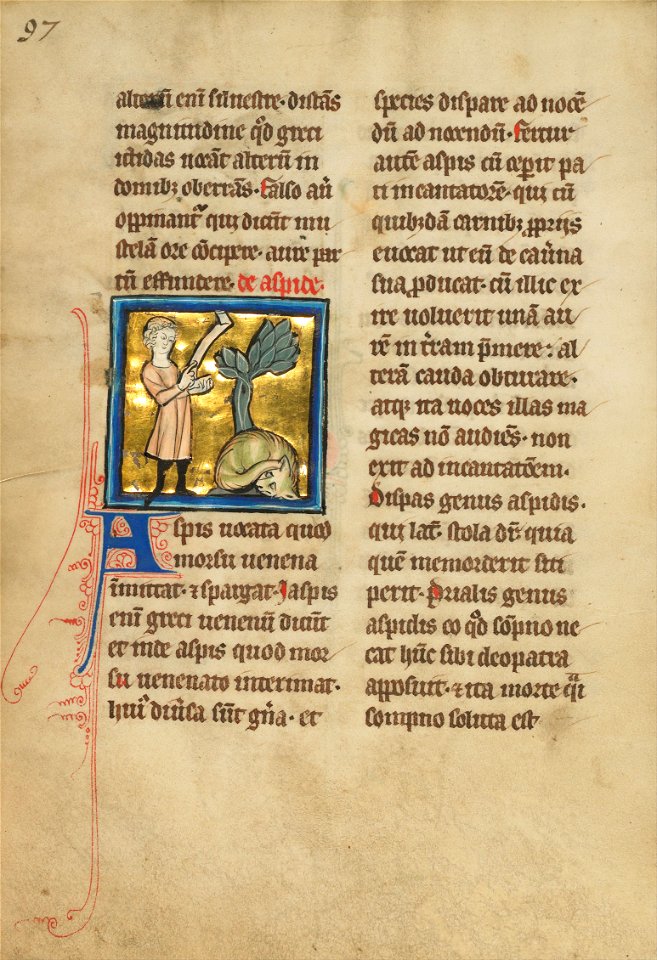 97
alterum eni silvestre · distās
magnitudine qd greci
ictidas vocāt alterū in
domibz oberrās · falso aūt
oppinantr qui dicūt mu
stelā ore cōcipere · aure par
tū effundere · de aspide ·
Aspis vocata quod
morsu venena
īmittat · ⁊ spargat · Jaspis
enī greci venenū dicūt
et inde aspis quod mor
su venenato interimat ·
huiꝰ diūsa sūt gn̄a · et
species dispare ad nocē
dū ad nocendū · fertur
autē aspis cū ceperit pa
ti incantatorē · qui cū
quibzdā carnibz ꝓprijs
evocat ut eū de cav̄na
sua ꝓducat · cū illic ex
ire voluerit unā au
rē in tr̄am p̄mere : al
terā cauda obturare ·
atqꝫ ita voces illas ma
gicas nō audiēs · non
exit ad incantatōem ·
Dispas genus aspidis ·
qui lat̄ · stola dr̄ · quia
quē memorderit siti
perit · Prialis genus
aspidis eo qd sōpno ne
cat hūc sibi cleopatra
apposuit · ⁊ ita morte qi
sompno soluta est